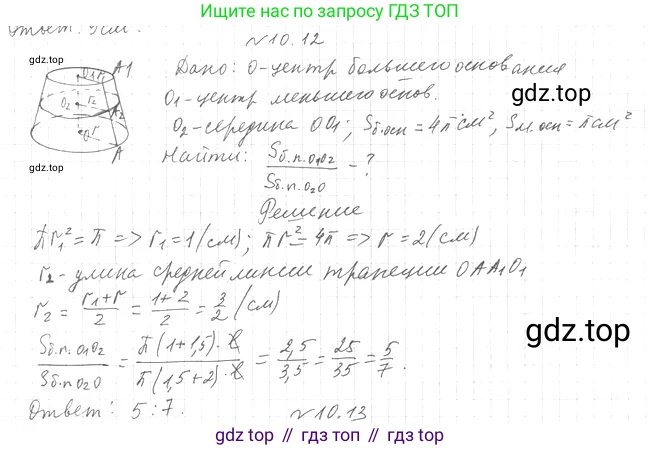 Ищите нас по запросу ГДЗ ТОП
Ответ: 9см.
№10.12
gdz.top
Дано: O-центр большего основания
O1-центр меньшего основ.
gdz.top
O2-середина OO1; Sб.осн = 4π см², Sм.осн = π см²
Найти: Sб.п.O1O2 / Sб.п.O2O - ?
gdz.top
Решение
πr₁² = π => r₁ = 1 (см); πr² = 4π => r = 2 (см)
r₂ - длина средней линии трапеции OAA1O1
r₂ = (r₁ + r) / 2 = (1 + 2) / 2 = 3/2 (см)
gdz.top
Sб.п.O1O2 / Sб.п.O2O = π(1+1,5)·ℓ / π(1,5+2)·ℓ = 2,5/3,5 = 25/35 = 5/7.
Ответ: 5:7.
№10.13
gdz.top // гдз.топ // gdz.top